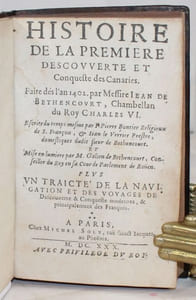 HISTOIRE
DE LA PREMIERE
DESCOVVERTE ET
Conqueste des Canaries.
Faite dés l'an 1402. par Messire IEAN DE
BETHENCOVRT, Chambellan
du Roy CHARLES VI.
Escrite du temps mesme par F. Pierre Bontier Religieux
de S. François, & Iean le Verrier Prestre,
domestiques dudit sieur de Bethencourt.
ET
Mise en lumiere par M. Galien de Bethencourt, Con-
seiller du Roy en sa Cour de Parlement de Rouen.
PLVS
VN TRAICTÉ DE LA NAVI-
GATION ET DES VOYAGES DE
Descouuerte & Conqueste modernes, &
principalement des François.
A PARIS,
Chez MICHEL SOLY, ruë sainct Iacques,
au Phœnix.
M. DC. XXX.
AVEC PRIVILEGE DV ROY.